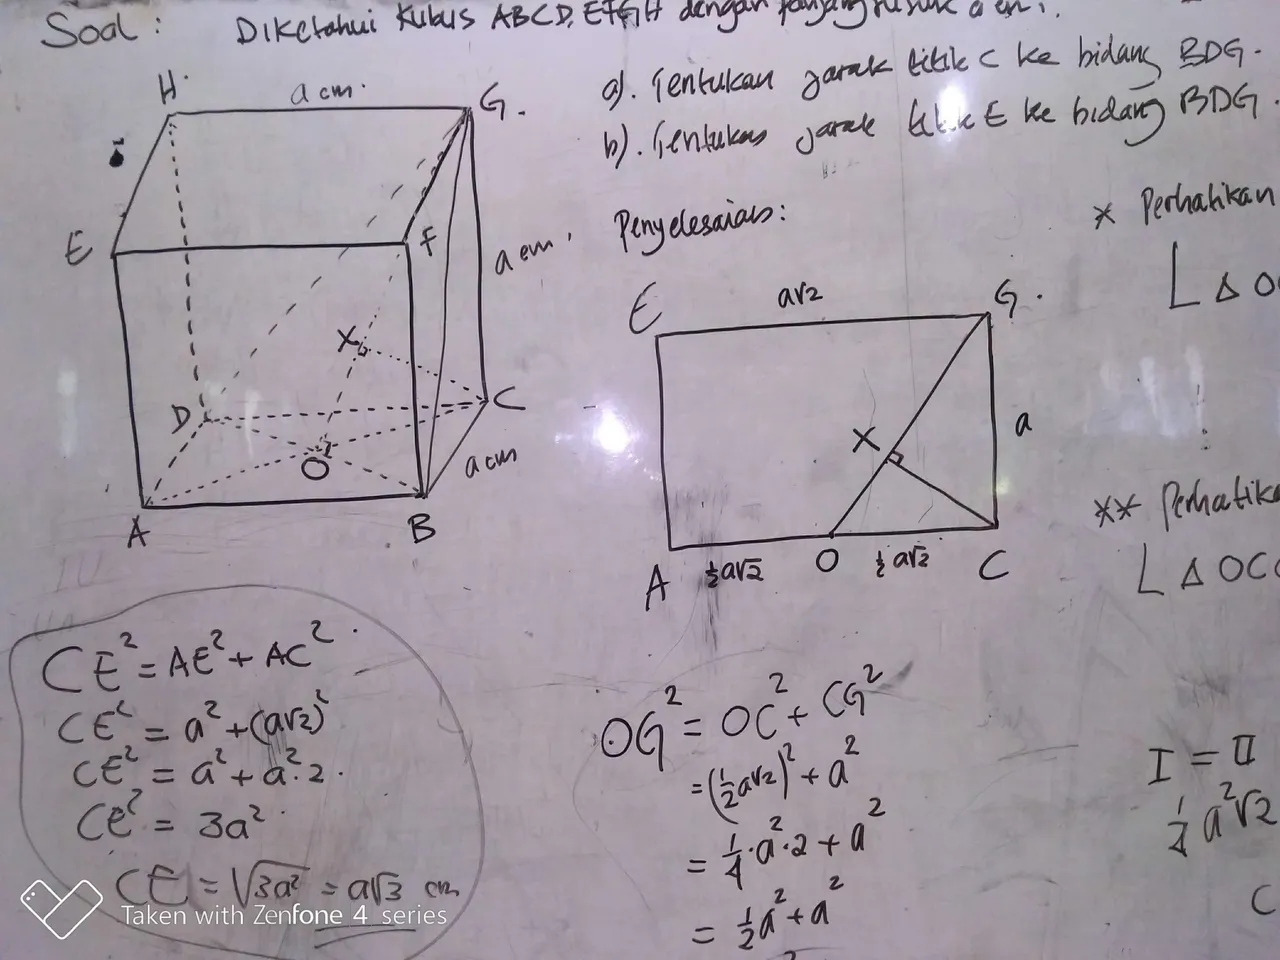 Soal : Diketahui Kubus ABCD.EFGH dengan panjang rusuk a cm.
a). Tentukan jarak titik C ke bidang BDG.
b). Tentukan jarak titik E ke bidang BDG.
Penyelesaian:
H
a cm.
G.
E
F
a cm.
X
D
C
O
a cm
A
B
E
a√2
G.
X
a
A
½a√2
O
½a√2
C
* Perhatikan
L Δ OC
** Perhatika
L Δ OC
CE² = AE² + AC².
CE² = a² + (a√2)²
CE² = a² + a².2.
CE² = 3a²
CE = √3a² = a√3 cm
OG² = OC² + CG²
= (½a√2)² + a²
= ¼.a².2 + a²
= ½a² + a²
I = II
¼a²√2
C
Taken with Zenfone 4 series